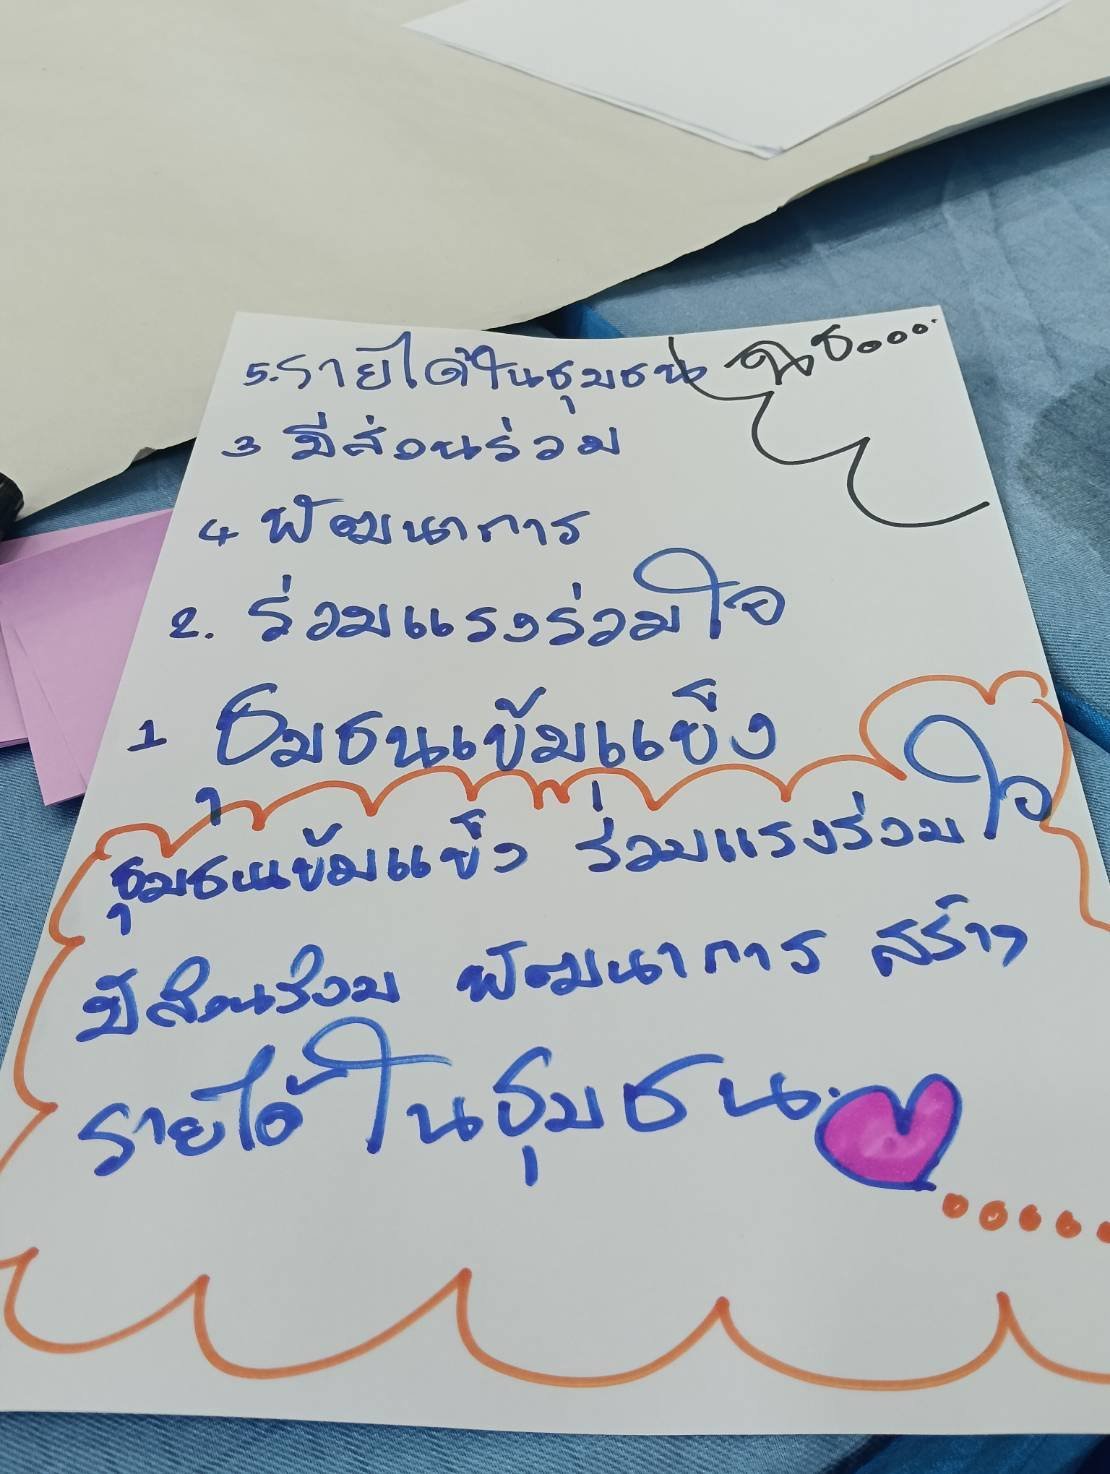 5.รายได้ในชุมชน
3 มีส่วนร่วม
4 พัฒนาการ
2. ร่วมแรงร่วมใจ
1 ชุมชนเข้มแข็ง
ชุมชนเข้มแข็ง ร่วมแรงร่วมใจ
มีส่วนร่วม พัฒนาการ สร้าง
รายได้ ในชุมชน.